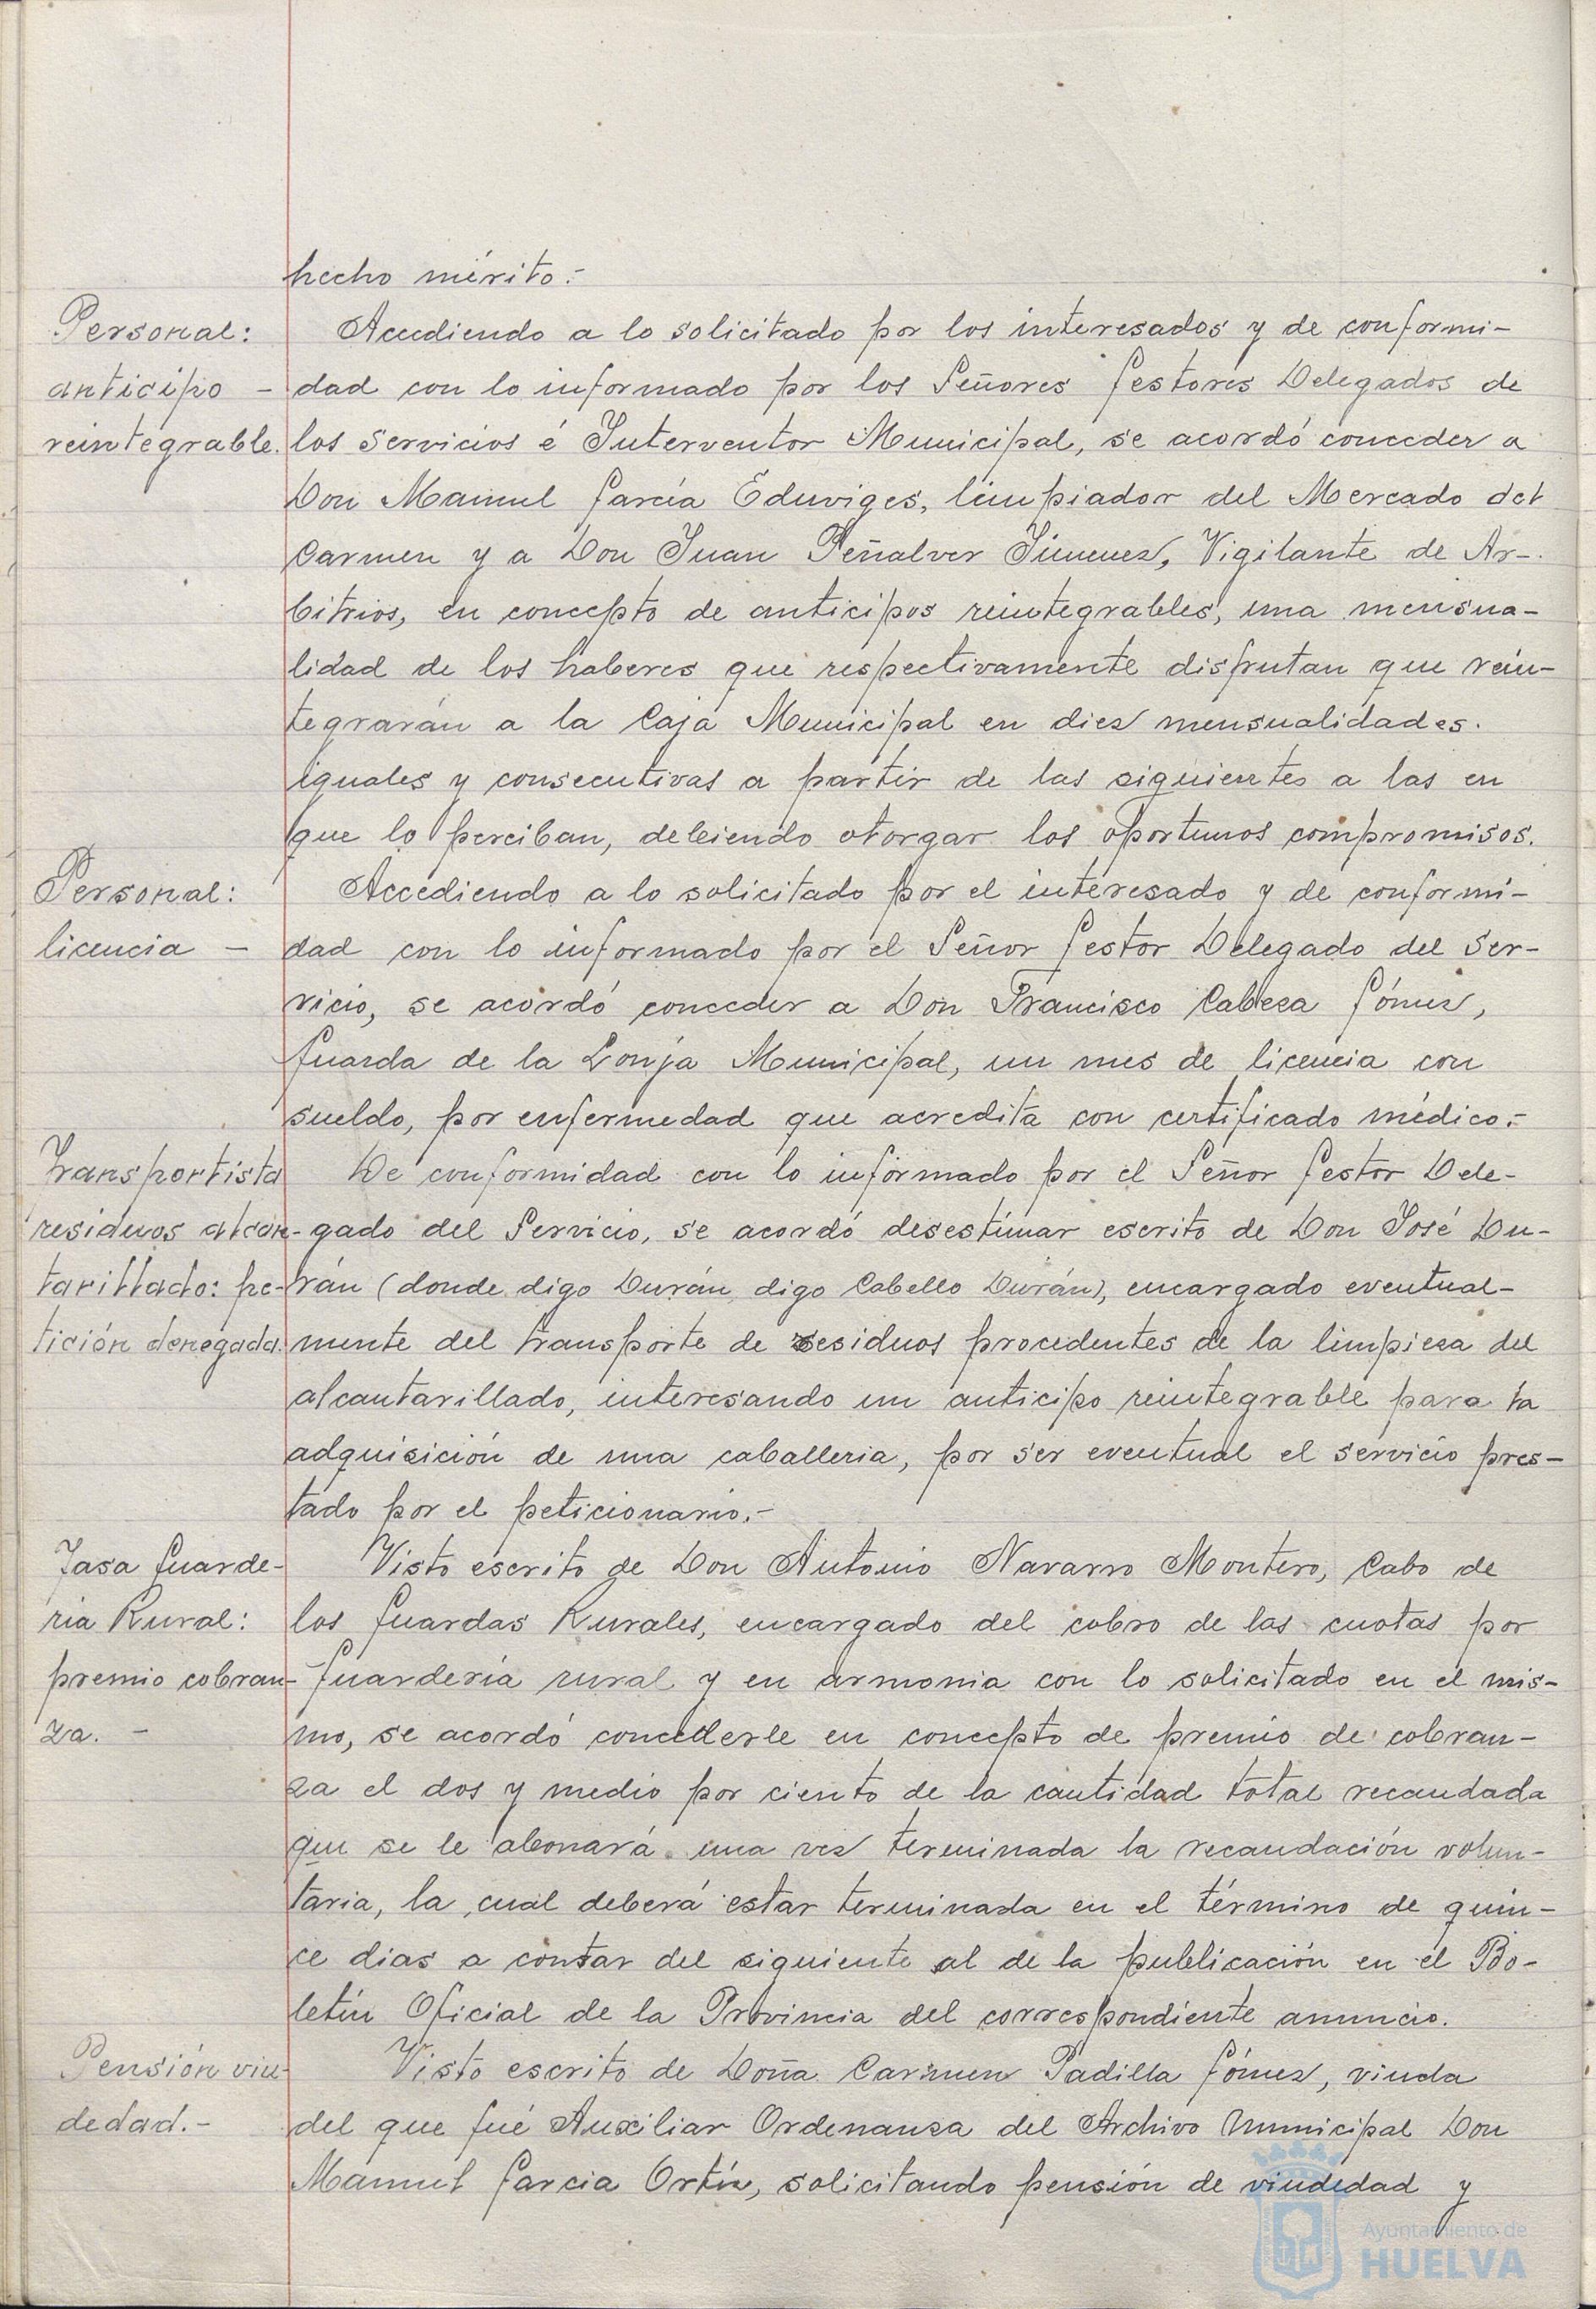 hecho mérito.-
Personal:
anticipo -
reintegrable.
Accediendo a lo solicitado por los interesados y de conformi-
dad con lo informado por los Señores Gestores Delegados de
los Servicios é Interventor Municipal, se acordó conceder a
Don Manuel García Eduviges, limpiador del Mercado del
Carmen y a Don Juan Peñalver Jimenez, Vigilante de Ar-
bitrios, en concepto de anticipos reintegrables, una mensua-
lidad de los haberes que respectivamente disfrutan que rein-
tegrarán a la Caja Municipal en diez mensualidades.
iguales y consecutivas a partir de las siguientes a las en
que lo perciban, debiendo otorgar los oportunos compromisos.
Personal:
licencia -
Accediendo a lo solicitado por el interesado y de conformi-
dad con lo informado por el Señor Gestor Delegado del Ser-
vicio, se acordó conceder a Don Francisco Cabeza Gómez,
Guarda de la Lonja Municipal, un mes de licencia con
sueldo, por enfermedad que acredita con certificado médico.-
Transportista
residuos alcan-
tarillado: pe-
tición denegada.
De conformidad con lo informado por el Señor Gestor Dele-
gado del Servicio, se acordó desestimar escrito de Don José Du-
rán (donde digo Durán digo Cabello Durán), encargado eventual-
mente del transporte de residuos procedentes de la limpieza del
alcantarillado, interesando un anticipo reintegrable para la
adquisición de una caballeria, por ser eventual el servicio pres-
tado por el peticionario.-
Tasa Guarde-
ria Rural:
premio cobran-
za. -
Visto escrito de Don Antonio Navarro Montero, Cabo de
los Guardas Rurales, encargado del cobro de las cuotas por
Guardería rural y en armonia con lo solicitado en el mis-
mo, se acordó concederle en concepto de premio de cobran-
za el dos y medio por ciento de la cantidad total recaudada
que se le abonará una vez terminada la recaudación volun-
taria, la cual deberá estar terminada en el término de quin-
ce dias a contar del siguiente al de la publicación en el Bo-
letín Oficial de la Provincia del correspondiente anuncio.
Pensión viu-
dedad.-
Visto escrito de Doña Carmen Padilla Gómez, viuda
del que fué Auxiliar Ordenanza del Archivo Municipal Don
Manuel Garcia Ortíz, solicitando pensión de viudedad y
Ayuntamiento de
HUELVA